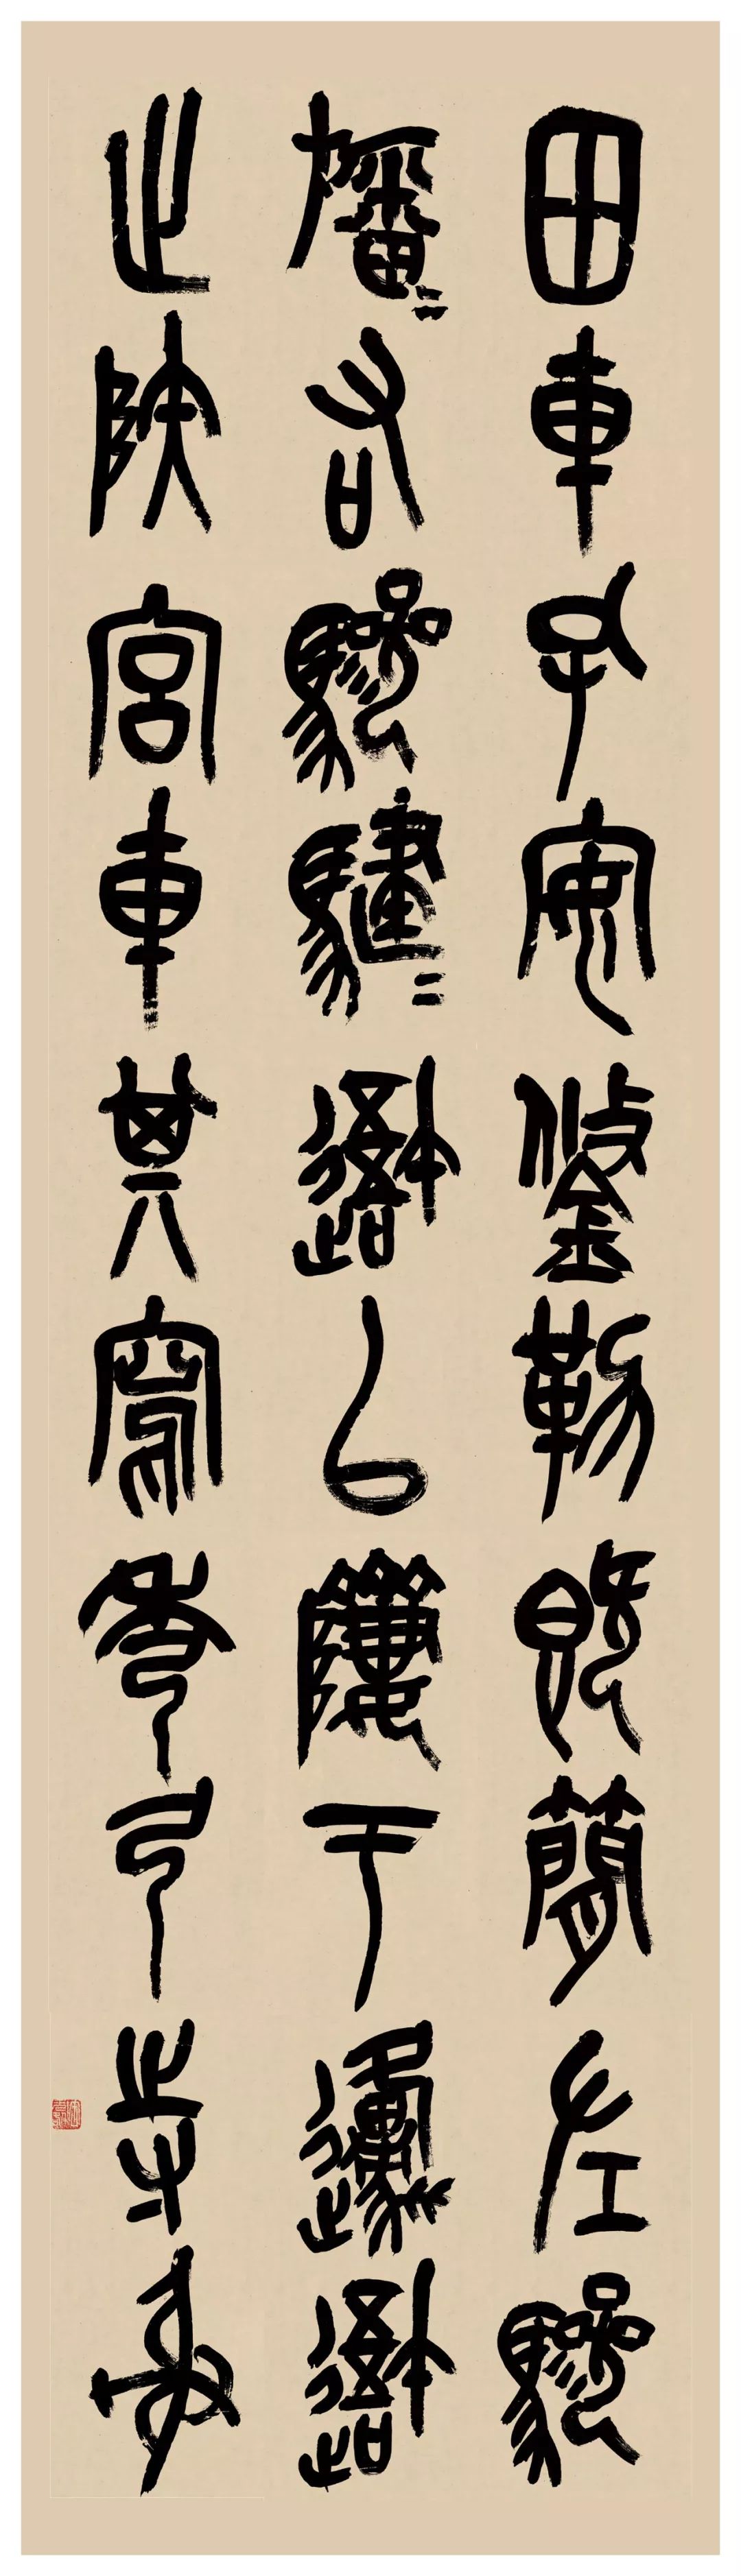 田車孔安鋚勒既簡左驂
旛=右驂騝=以隮于邍
止陜宮車其寫秀弓寺射